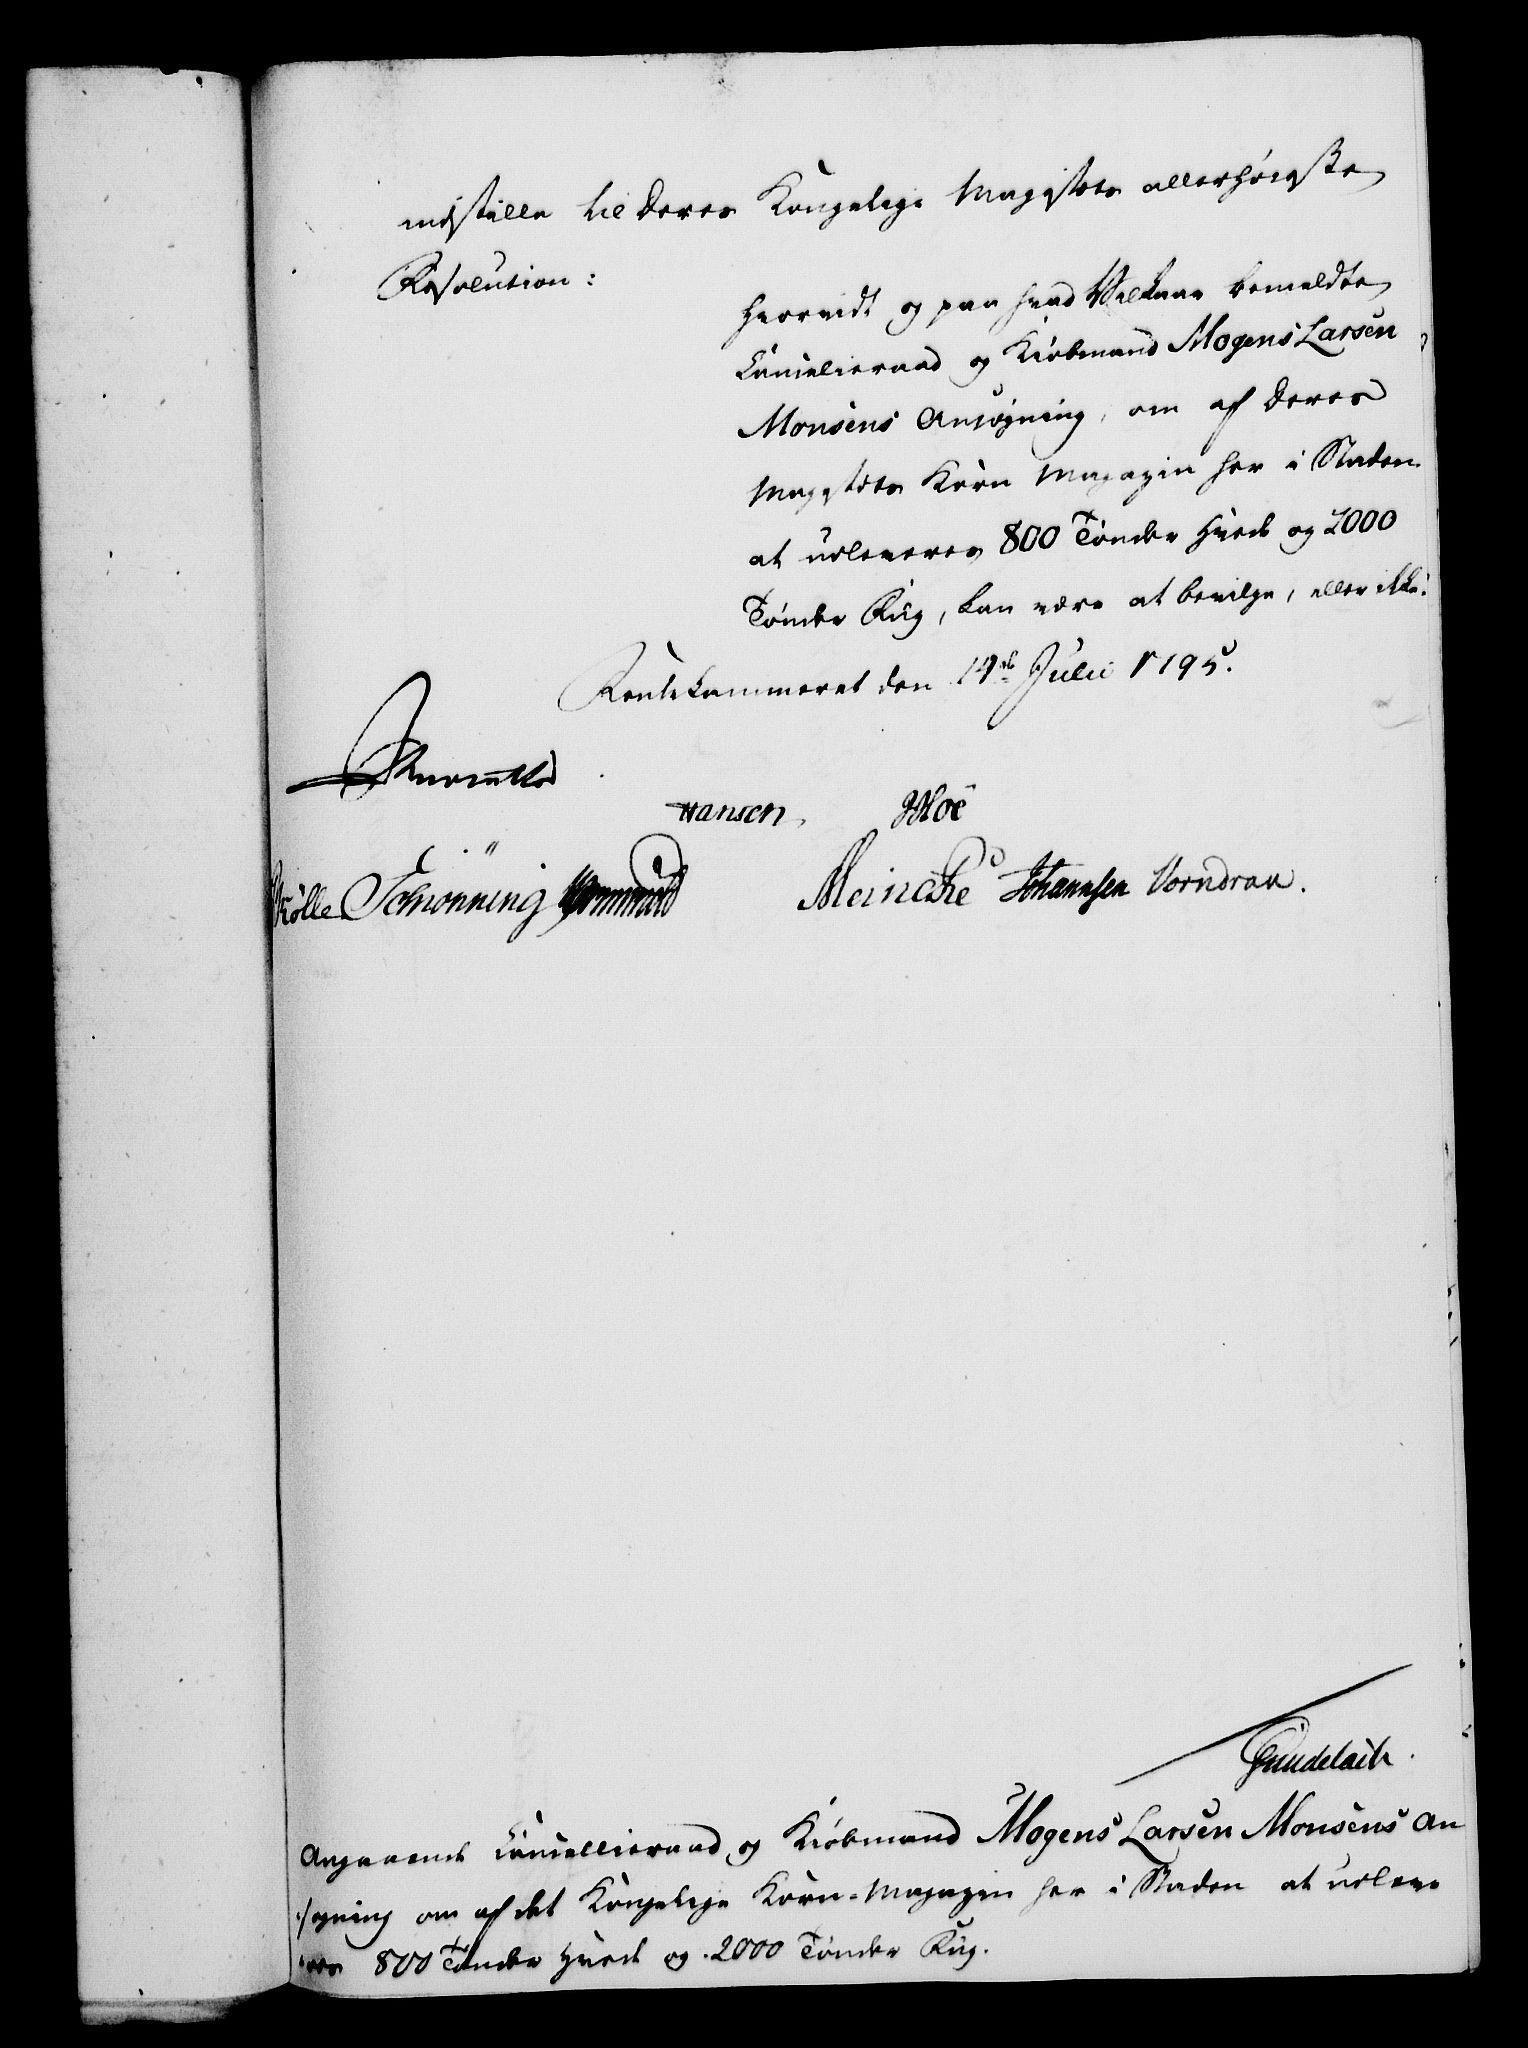 indstille til Deres Kongelige Majestets allerhöieste
Resolution:
hvorvidt og paa hvad Velkaar bemeldte
Cancelieraad og Kiöbmand Mogens Larsen
Monsens Ansögning, om af Deres
Majestets Korn Magazin her i Staden
at udleveres 800 Tönder Hvede og 2000
Tönder Rug, kan være at bevilge, eller ikke.
Rentekammeret den 14de Julii 1795.
Hansen. Moe
Schiönning Wormskiold Meincke Johannsen Vorndran.
Gundelach.
Angaaende Cancellieraad og Kiöbmand Mogens Larsen Monsens An
sögning om af det Kongelige Korn-Magazin her i Staden at udleve
res 800 Tönder Hvede og 2000 Tönder Rug.